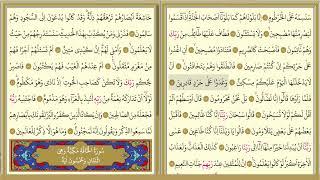 سَنَسِمُهُ عَلَى الْخُرْطُومِ إِنَّا بَلَوْنَاهُمْ كَمَا بَلَوْنَا أَصْحَابَ الْجَنَّةِ إِذْ أَقْسَمُوا
لَيَصْرِمُنَّهَا مُصْبِحِينَ وَلَا يَسْتَثْنُونَ فَطَافَ عَلَيْهَا طَائِفٌ مِنْ رَبِّكَ
وَهُمْ نَائِمُونَ فَأَصْبَحَتْ كَالصَّرِيمِ فَتَنَادَوْا مُصْبِحِينَ أَنِ اغْدُوا
عَلَى حَرْثِكُمْ إِنْ كُنْتُمْ صَارِمِينَ فَانْطَلَقُوا وَهُمْ يَتَخَافَتُونَ أَنْ
لَا يَدْخُلَنَّهَا الْيَوْمَ عَلَيْكُمْ مِسْكِينٌ وَغَدَوْا عَلَى حَرْدٍ قَادِرِينَ فَلَمَّا
رَأَوْهَا قَالُوا إِنَّا لَضَالُّونَ بَلْ نَحْنُ مَحْرُومُونَ قَالَ أَوْسَطُهُمْ أَلَمْ
أَقُلْ لَكُمْ لَوْلَا تُسَبِّحُونَ قَالُوا سُبْحَانَ رَبِّنَا إِنَّا كُنَّا ظَالِمِينَ فَأَقْبَلَ
بَعْضُهُمْ عَلَى بَعْضٍ يَتَلَاوَمُونَ قَالُوا يَا وَيْلَنَا إِنَّا كُنَّا طَاغِينَ عَسَى
رَبُّنَا أَنْ يُبْدِلَنَا خَيْرًا مِنْهَا إِنَّا إِلَى رَبِّنَا رَاغِبُونَ كَذَلِكَ الْعَذَابُ وَلَعَذَابُ
الْآخِرَةِ أَكْبَرُ لَوْ كَانُوا يَعْلَمُونَ إِنَّ لِلْمُتَّقِينَ عِنْدَ رَبِّهِمْ جَنَّاتِ النَّعِيمِ
خَاشِعَةً أَبْصَارُهُمْ تَرْهَقُهُمْ ذِلَّةٌ وَقَدْ كَانُوا يُدْعَوْنَ إِلَى السُّجُودِ وَهُمْ
سَالِمُونَ فَذَرْنِي وَمَنْ يُكَذِّبُ بِهَذَا الْحَدِيثِ سَنَسْتَدْرِجُهُمْ مِنْ حَيْثُ
لَا يَعْلَمُونَ وَأُمْلِي لَهُمْ إِنَّ كَيْدِي مَتِينٌ أَمْ تَسْأَلُهُمْ أَجْرًا فَهُمْ
مِنْ مَغْرَمٍ مُثْقَلُونَ أَمْ عِنْدَهُمُ الْغَيْبُ فَهُمْ يَكْتُبُونَ فَاصْبِرْ
لِحُكْمِ رَبِّكَ وَلَا تَكُنْ كَصَاحِبِ الْحُوتِ إِذْ نَادَى وَهُوَ مَكْظُومٌ
لَوْلَا أَنْ تَدَارَكَهُ نِعْمَةٌ مِنْ رَبِّهِ لَنُبِذَ بِالْعَرَاءِ وَهُوَ مَذْمُومٌ فَاجْتَبَاهُ رَبُّهُ
فَجَعَلَهُ مِنَ الصَّالِحِينَ وَإِنْ يَكَادُ الَّذِينَ كَفَرُوا لَيُزْلِقُونَكَ بِأَبْصَارِهِمْ
لَمَّا سَمِعُوا الذِّكْرَ وَيَقُولُونَ إِنَّهُ لَمَجْنُونٌ وَمَا هُوَ إِلَّا ذِكْرٌ لِلْعَالَمِينَ
سُورَةُ الْحَاقَّةِ مَكِّيَّةٌ وَهِيَ
اثْنَتَانِ وَخَمْسُونَ آيَةً